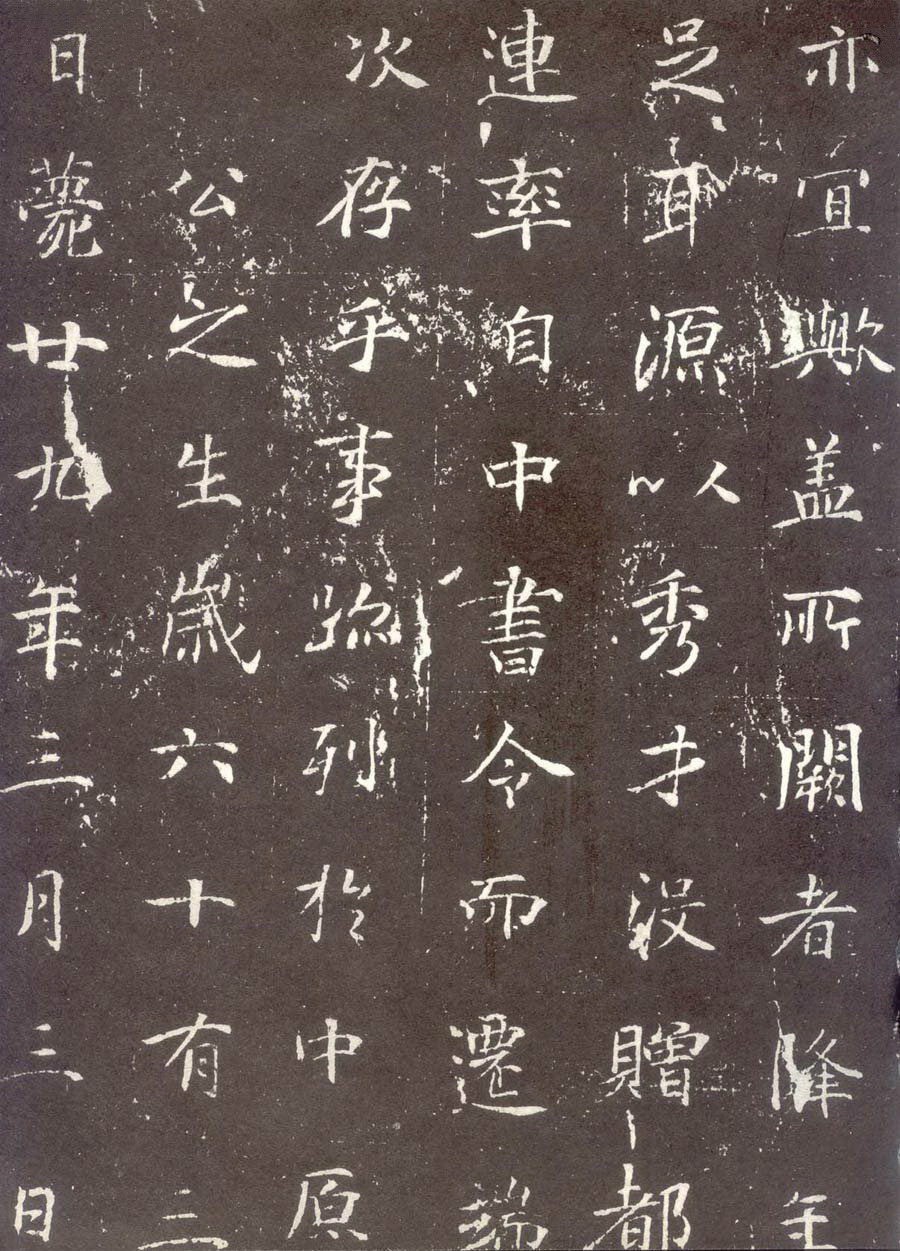 亦宜歟蓋所闕者降年
足耳源以秀才没贈都
連率自中書令而遷端
次存乎事跡列於中原
公之生歲六十有三
日薨廿九年三月三日